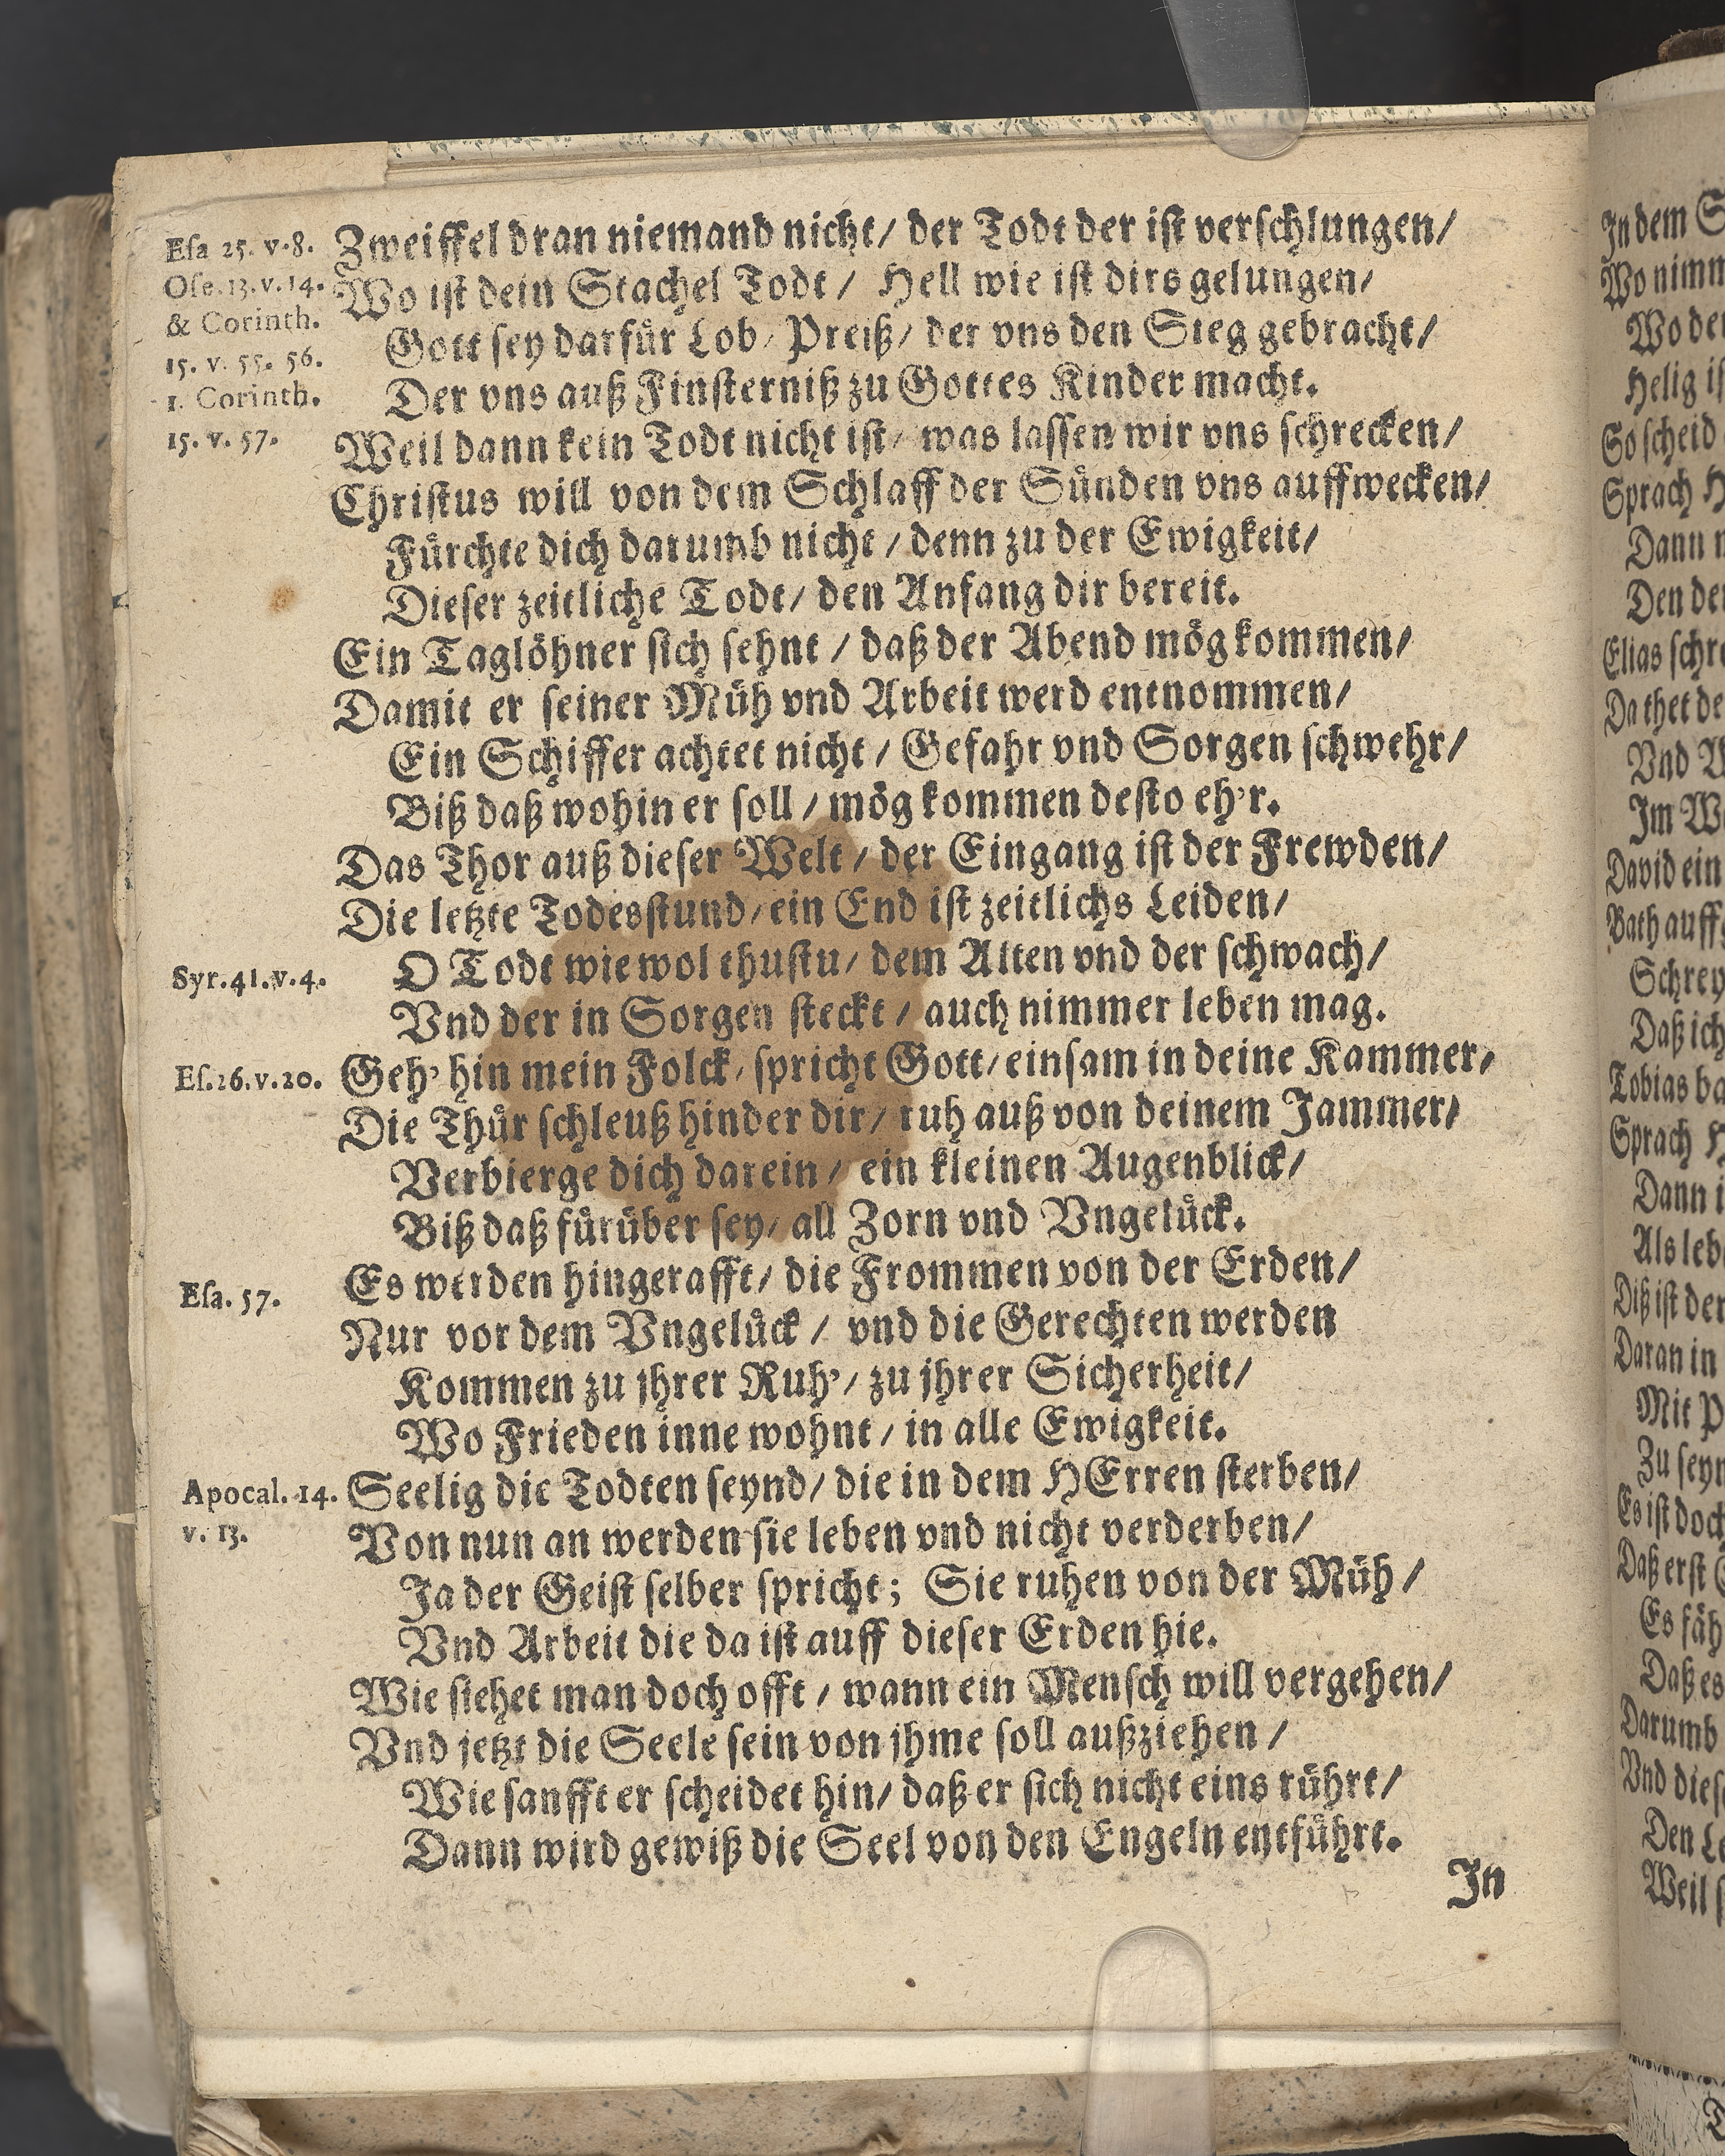 Esa 25. v.8.
Ose. 13. v. 14.
& Corinth.
15. v. 55. 56.
1. Corinth.
15. v. 57.
Zweiffel dran niemand nicht/ der Todt der ist verschlungen/
Wo ist dein Stachel Todt/ Hell wie ist dirs gelungen/
Gott sey darfür Lob/ Preiß/ der vns den Sieg gebracht/
Der vns auß Finsterniß zu Gottes Kinder macht.
Weil dann kein Todt nicht ist/ was lassen wir vns schrecken/
Christus will von dem Schlaff der Sünden vns auffwecken/
Fürchte dich darumb nicht/ denn zu der Ewigkeit/
Dieser zeitliche Todt/ den Anfang dir bereit.
Ein Taglöhner sich sehnt/ daß der Abend mög kommen/
Damit er seiner Müh vnd Arbeit werd entnommen/
Ein Schiffer achtet nicht/ Gefahr vnd Sorgen schwehr/
Biß daß wohin er soll/ mög kommen desto eh'r.
Das Thor auß dieser Welt/ der Eingang ist der Frewden/
Die letzte Todesstund/ ein End ist zeitlichs Leiden/
Syr. 41. v. 4.
O Todt wie wol thustu/ dem Alten vnd der schwach/
Vnd der in Sorgen steckt/ auch nimmer leben mag.
Es. 26. v. 20.
Geh' hin mein Folck/ spricht Gott/ einsam in deine Kammer/
Die Thür schleuß hinder dir/ ruh auß von deinem Jammer/
Verbierge dich darein/ ein kleinen Augenblick/
Biß daß fürüber sey/ all Zorn vnd Vngelück.
Esa. 57.
Es werden hingerafft/ die Frommen von der Erden/
Nur vor dem Vngelück/ vnd die Gerechten werden
Kommen zu jhrer Ruh'/ zu jhrer Sicherheit/
Wo Frieden inne wohnt/ in alle Ewigkeit.
Apocal. 14.
v. 13.
Seelig die Todten seynd/ die in dem HErren sterben/
Von nun an werden sie leben vnd nicht verderben/
Ja der Geist selber spricht; Sie ruhen von der Müh/
Vnd Arbeit die da ist auff dieser Erden hie.
Wie siehet man doch offt/ wann ein Mensch will vergehen/
Vnd jetzt die Seele sein von jhme soll außziehen/
Wie sanfft er scheidet hin/ daß er sich nicht eins rührt/
Dann wird gewiß die Seel von den Engeln entführt.
In
In dem
Wo nimm
Wo der
Helig
So scheid
Sprach
Dann
Den
Elias
Da thet
Vnd
Im
David ein
Bath auff
Schrey
Daß ich
Tobias
Sprach
Dann
Als
Diß ist der
Daran in
Mit
Zu
Es ist doch
Daß erst
Es
Daß es
Darumb
Vnd
Den
Weil